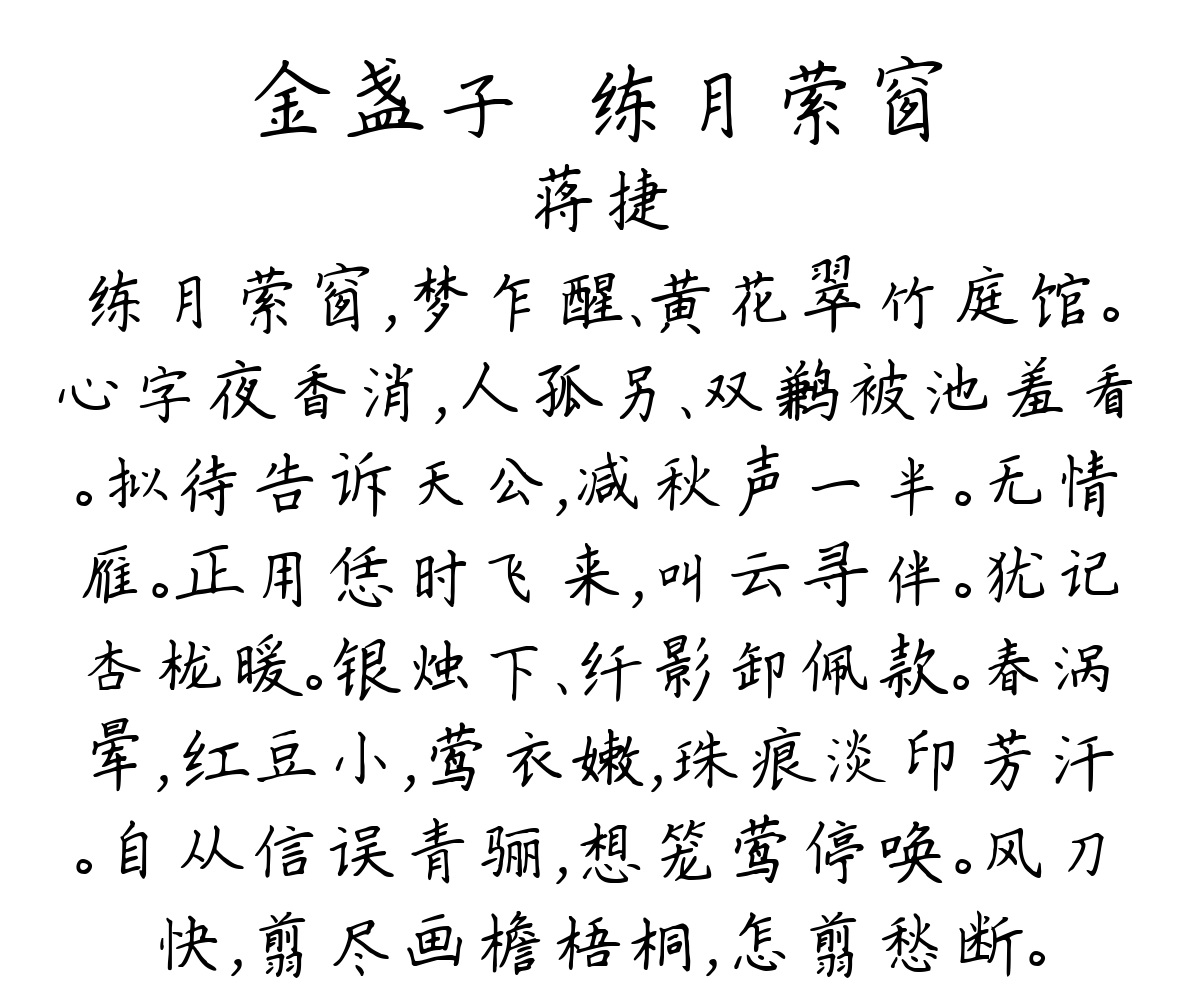 金盏子 练月萦窗
蒋捷
练月萦窗,梦乍醒、黄花翠竹庭馆。
心字夜香消,人孤另、双鹣被池羞看
。拟待告诉天公,减秋声一半。无情
雁。正用恁时飞来,叫云寻伴。犹记
杏栊暖。银烛下、纤影卸佩款。春涡
晕,红豆小,莺衣嫩,珠痕淡印芳汗
。自从信误青骊,想笼莺停唤。风刀
快,翦尽画檐梧桐,怎翦愁断。